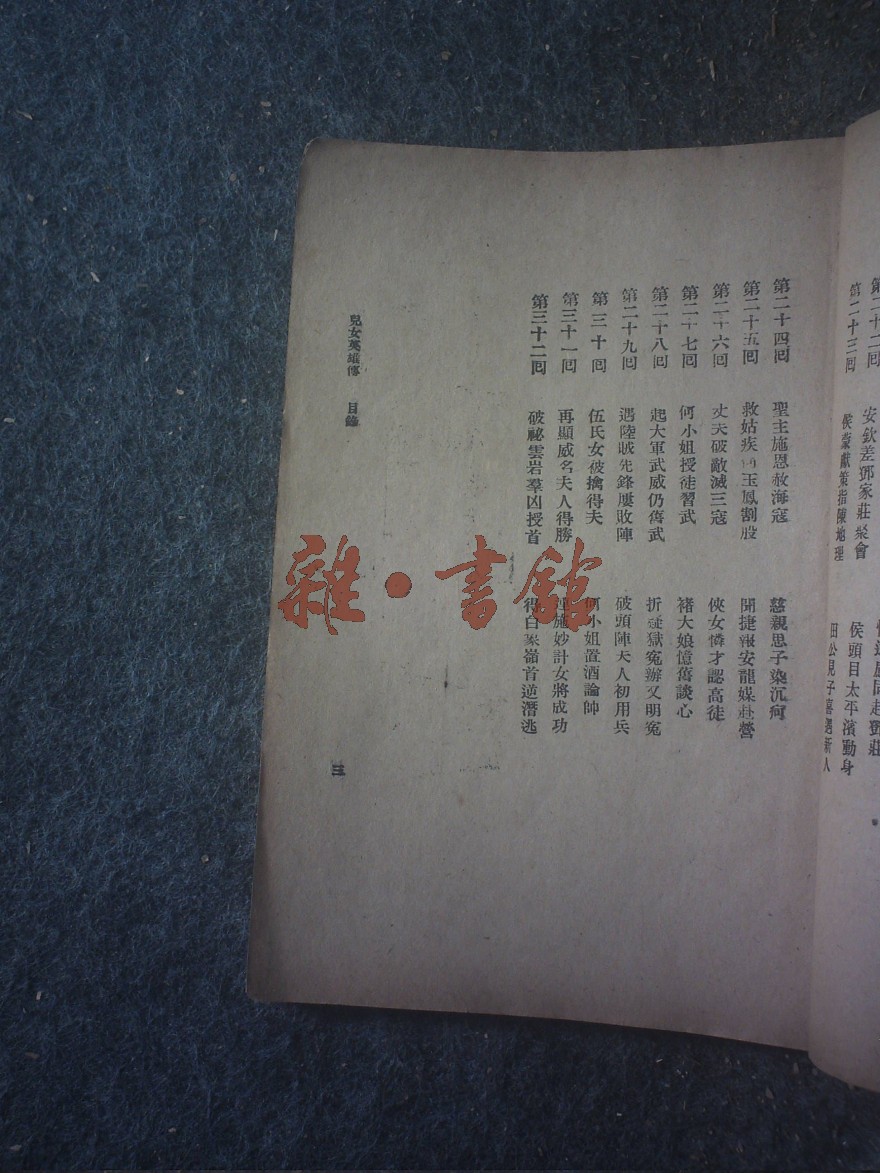 第二十二回 安欽差鄧家莊聚會
第二十三回 侯蒙獻策指陳地理 田公晃子喜遇新人
侯頭目太平濱動身
第二十四回 聖主施恩赦海寇 慈親思子染沉疴
第二十五回 救姑疾 玉鳳割股 聞捷報安龍媒赴營
第二十六回 丈夫破敵滅三寇 俠女憐才認高徒
第二十七回 何小姐授徒習武 褚大娘憶舊談心
第二十八回 起大軍武威仍舊武 折疑獄冤辦又明冤
第二十九回 遇陸賊先鋒屢敗陣 破頭陣夫人初用兵
第三十回 伍氏女被擒得夫 何小姐置酒論帥
第三十一回 再顯威名夫人得勝 施妙計女將成功
第三十二回 破祕雲岩羣凶授首 得白 嶺首逆潛逃
兒女英雄傳 目錄
三
雜·書館